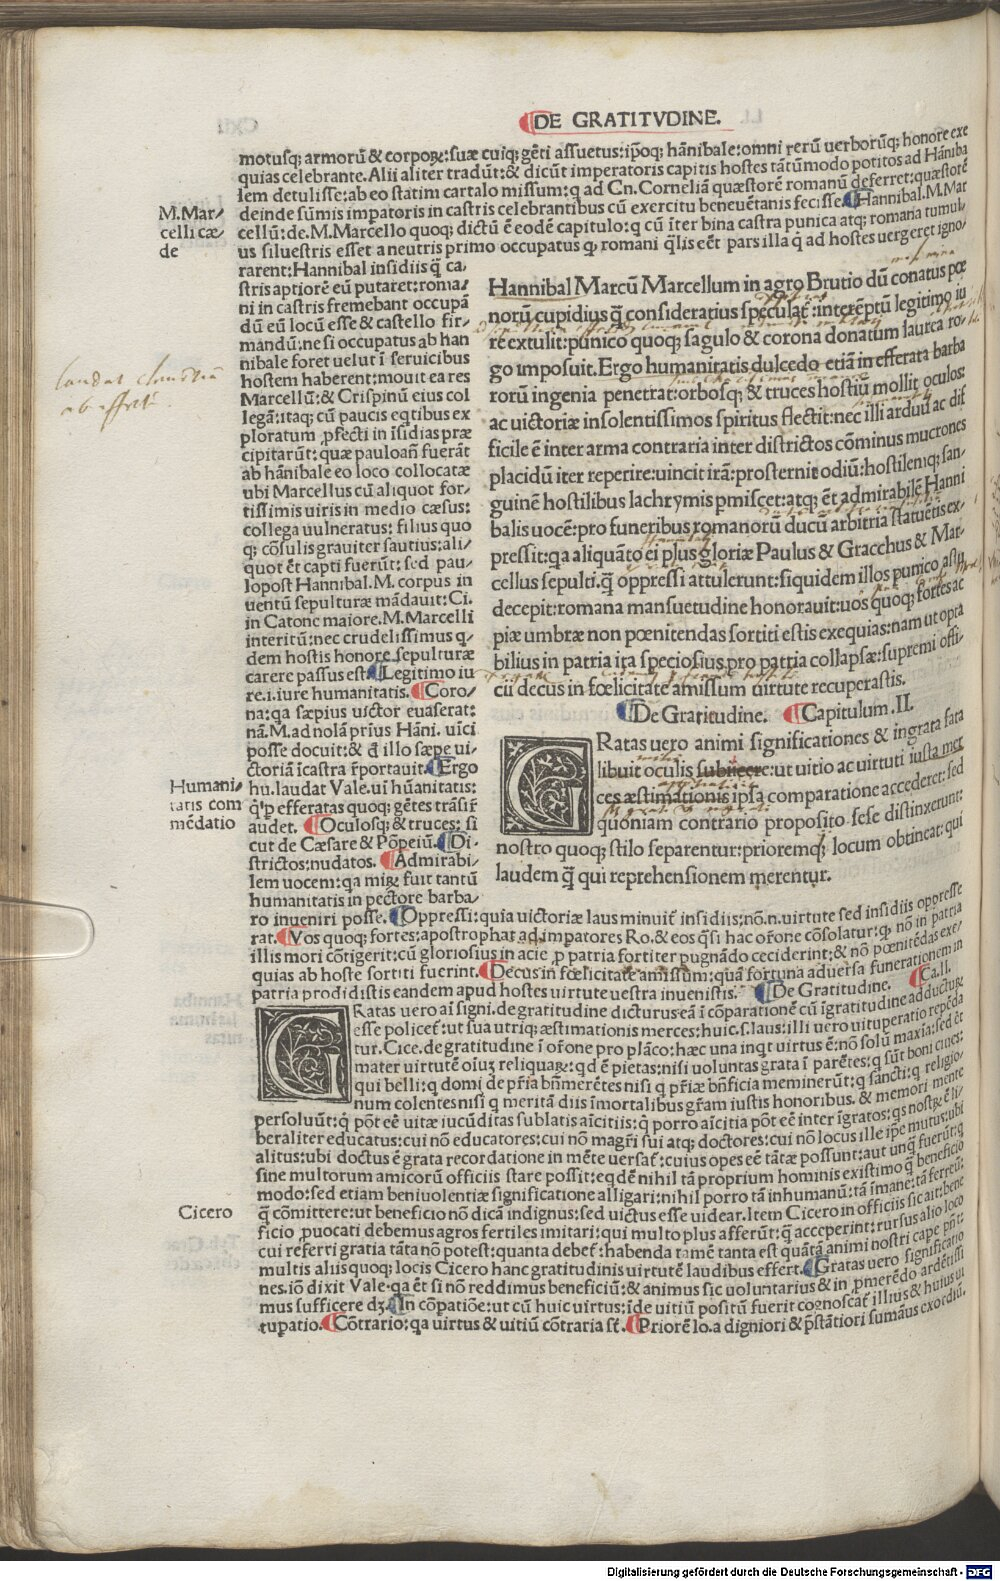 DE GRATITVDINE.
motusq; armorũ & corporꝝ: suæ cuiq; gẽti assuetus: ip̃oq; hãnibale: omni rerũ uerborũq; honore exe
quias celebrante. Alii aliter tradũt: & dicũt imperatoris capitis hostes tãtũmodo potitos ad Hãniba
lem detulisse: ab eo statim cartalo missum: q ad Cn. Corneliã quæstorẽ romanũ deferret: quæstorẽ
deinde sũmis impatoris in castris celebrantibus cũ exercitu beneuẽtanis fecisse. Hannibal. M. Mar
cellũ: de. M. Marcello quoq; dictũ ẽ eodẽ capitulo: q cũ iter bina castra punica atq; romana tumul,
us siluestris esset a neutris primo occupatus q romani q̃lis eẽt pars illa q̃ ad hostes uergeret igno,
M. Mar,
celli cæ,
de
rarent: Hannibal insidiis q̃ ca,
stris aptiorẽ eũ putaret: roma,
ni in castris fremebant occupã
dũ eũ locũ esse & castello fir,
mandũ: ne si occupatus ab han
nibale foret uelut ĩ seruicibus
hostem haberent: mouit ea res
Marcellũ: & Crispinũ eius col
legã: itaq; cũ paucis eqtibus ex
ploratum ꝓfecti in ĩsidias præ
cipitarũt: quæ pauloañ fuerãt
ab hãnibale eo loco collocatæ
ubi Marcellus cũ aliquot for,
tissimis uiris in medio cæsus:
collega uulneratus: filius quo
q; cõsulis grauiter sautius: ali,
quot ẽt capti fuerũt: sed pau,
lopost Hannibal. M. corpus in
uentũ sepulturæ mãdauit: Ci.
in Catone maiore. M. Marcelli
interitũ: nec crudelissimus q,
dem hostis honore sepulturæ
carere passus est. Legitimo iu
re. i. iure humanitatis. Coro,
na: qa sæpius uictor euaserat:
nã. M. ad nolã prius Hãni. uici
posse docuit: & d illo sæpe ui,
ctoriã icastra rẽportauit. Ergo
hu. laudat Vale. ui hũanitatis:
q̃ ꝑ efferatas quoq; gẽtes trãsir̃
audet. Oculosq; & truces: si
cut de Cæsare & Põpeiũ. Di,
strictos: nudatos. Admirabi,
lem uocem: qa mirꝝ fuit tantũ
humanitatis in pectore barba,
Humani,
tatis com
mẽdatio
laudat
Hannibal Marcũ Marcellum in agro Brutio dũ conatus pœ
norũ cupidius q̃ consideratius speculat̃: interẽptũ legitimo iu
re extulit: punico quoq; sagulo & corona donatum laurea ro,
go imposuit. Ergo humanitatis dulcedo etiã in efferata barba
rorũ ingenia penetrat: orbosq; & truces hostiũ mollit oculos:
ac uictoriæ insolentissimos spiritus flectit: nec illi arduũ ac dif
ficile ẽ inter arma contraria inter districtos cõminus mucrones
placidũ iter reperire: uincit irã: prosternit odiũ: hostilemq; san,
guinẽ hostilibus lachrymis pmiscet: atq; ẽt admirabilẽ Hanni
balis uocẽ: pro funeribus romanorũ ducũ arbitria statuẽtis ex,
pressit: qa aliquãto ei plus gloriæ Paulus & Gracchus & Mar,
cellus sepulti. q̃ oppressi attulerunt: siquidem illos punico astu
decepit: romana mansuetudine honorauit: uos quoq; fortes ac
piæ umbræ non pœnitendas sortiti estis exequias: nam ut opta
bilius in patria ita speciosius pro patria collapsæ: supremi offi,
cii decus in fœlicitate amissum uirtute recuperastis.
De Gratitudine. Capitulum. II.
GRatas uero animi significationes & ingrata fata
libuit oculis subiicere: ut uitio ac uirtuti iusta mer
ces æstimationis ipsa comparatione accederet: sed
quoniam contrario proposito sese distinxerunt:
nostro quoq; stilo separentur: prioremq; locum obtineat: qui
laudem q̃ qui reprehensionem merentur.
ro inueniri posse. Oppressi: quia uictoriæ laus minuit̃ insidiis: nõ. n. uirtute sed insidiis oppresse
rat. Vos quoq; fortes: apostrophat ad impatores Ro. & eos q̃si hac or̃one cõsolatur: q nõ in patria
illis mori cõtigerit: cũ gloriosius in acie ꝓ patria fortiter pugnãdo ceciderint: & nõ pœnitẽdas exe,
quias ab hoste sortiti fuerint. Decus in fœlicitate amissum: quã fortuna aduersa funerationem in
patria prodidistis eandem apud hostes uirtute uestra inuenistis. De Gratitudine. Ca. II.
GRatas uero ai signi. de gratitudine dicturus eã ĩ cõparationẽ cũ ĩgratitudine adductur
esse policet̃: ut sua utriq; æstimationis merces: huic. s. laus: illi uero uituperatio repẽda
tur. Cice. de gratitudine ĩ or̃one pro plãco: hæc una inqt uirtus ẽ: nõ solũ maxĩa: sed ẽt
mater uirtutẽ oĩuz reliquarꝝ: qd ẽ pietas: nisi uoluntas grata ĩ parẽtes: q sũt boni ciues:
qui belli: q domi de pr̃ia bñmerẽtes nisi q pr̃iæ bñficia meminerũt: q sancti: q religio,
num colentes nisi q meritã diis ĩmortalibus gr̃am iustis honoribus. & memori mente
persoluũt: q̃ põt eẽ uitæ iucũditas sublatis aĩcitiis: q porro aĩcitia põt eẽ inter ĩgratos: qs nostrꝝ ẽ li,
beraliter educatus: cui nõ educatores: cui nõ magr̃i sui atq; doctores: cui nõ locus ille ip̃e mutus: ubi
alitus: ubi doctus ẽ grata recordatione in mẽte uersat̃: cuius opes eẽ tãtæ possunt: aut unq̃ fuerũt: q
sine multorum amicorũ officiis stare possit: eqdẽ nihil tã proprium hominis existimo q̃ beneficio
modo: sed etiam beniuolentiæ significatione alligari: nihil porro tã inhumanũ: tã ĩmane: tã ferreũ:
q̃ cõmittere: ut beneficio nõ dicã indignus: sed uictus esse uidear. Item Cicero in officiis sic ait: bene
ficio ꝓuocati debemus agros fertiles imitari: qui multo plus afferũt: q̃ acceperint: rursus alio loco
cui referri gratia tãta nõ potest: quanta debet̃: habenda tamẽ tanta est quãtã animi nostri cape pñt:
multis aliis quoq; locis Cicero hanc gratitudinis uirtutẽ laudibus effert. Gratas uero significatio
nes. iõ dixit Vale. qa ẽt si nõ reddimus beneficiũ: & animus sic uoluntarius & in ꝓmerẽdo ardẽtissi
mus sufficere dz. In cõpatiõe: ut cũ huic uirtus: ĩde uitiũ positũ fuerit cognoscat̃ illius & huius ui
tupatio. Cõtrario: qa uirtus & uitiũ cõtraria st̃. Priorẽ lo. a digniori & p̃stãtiori sumãus exordiũ.
Cicero
Digitalisierung gefördert durch die Deutsche Forschungsgemeinschaft - DFG